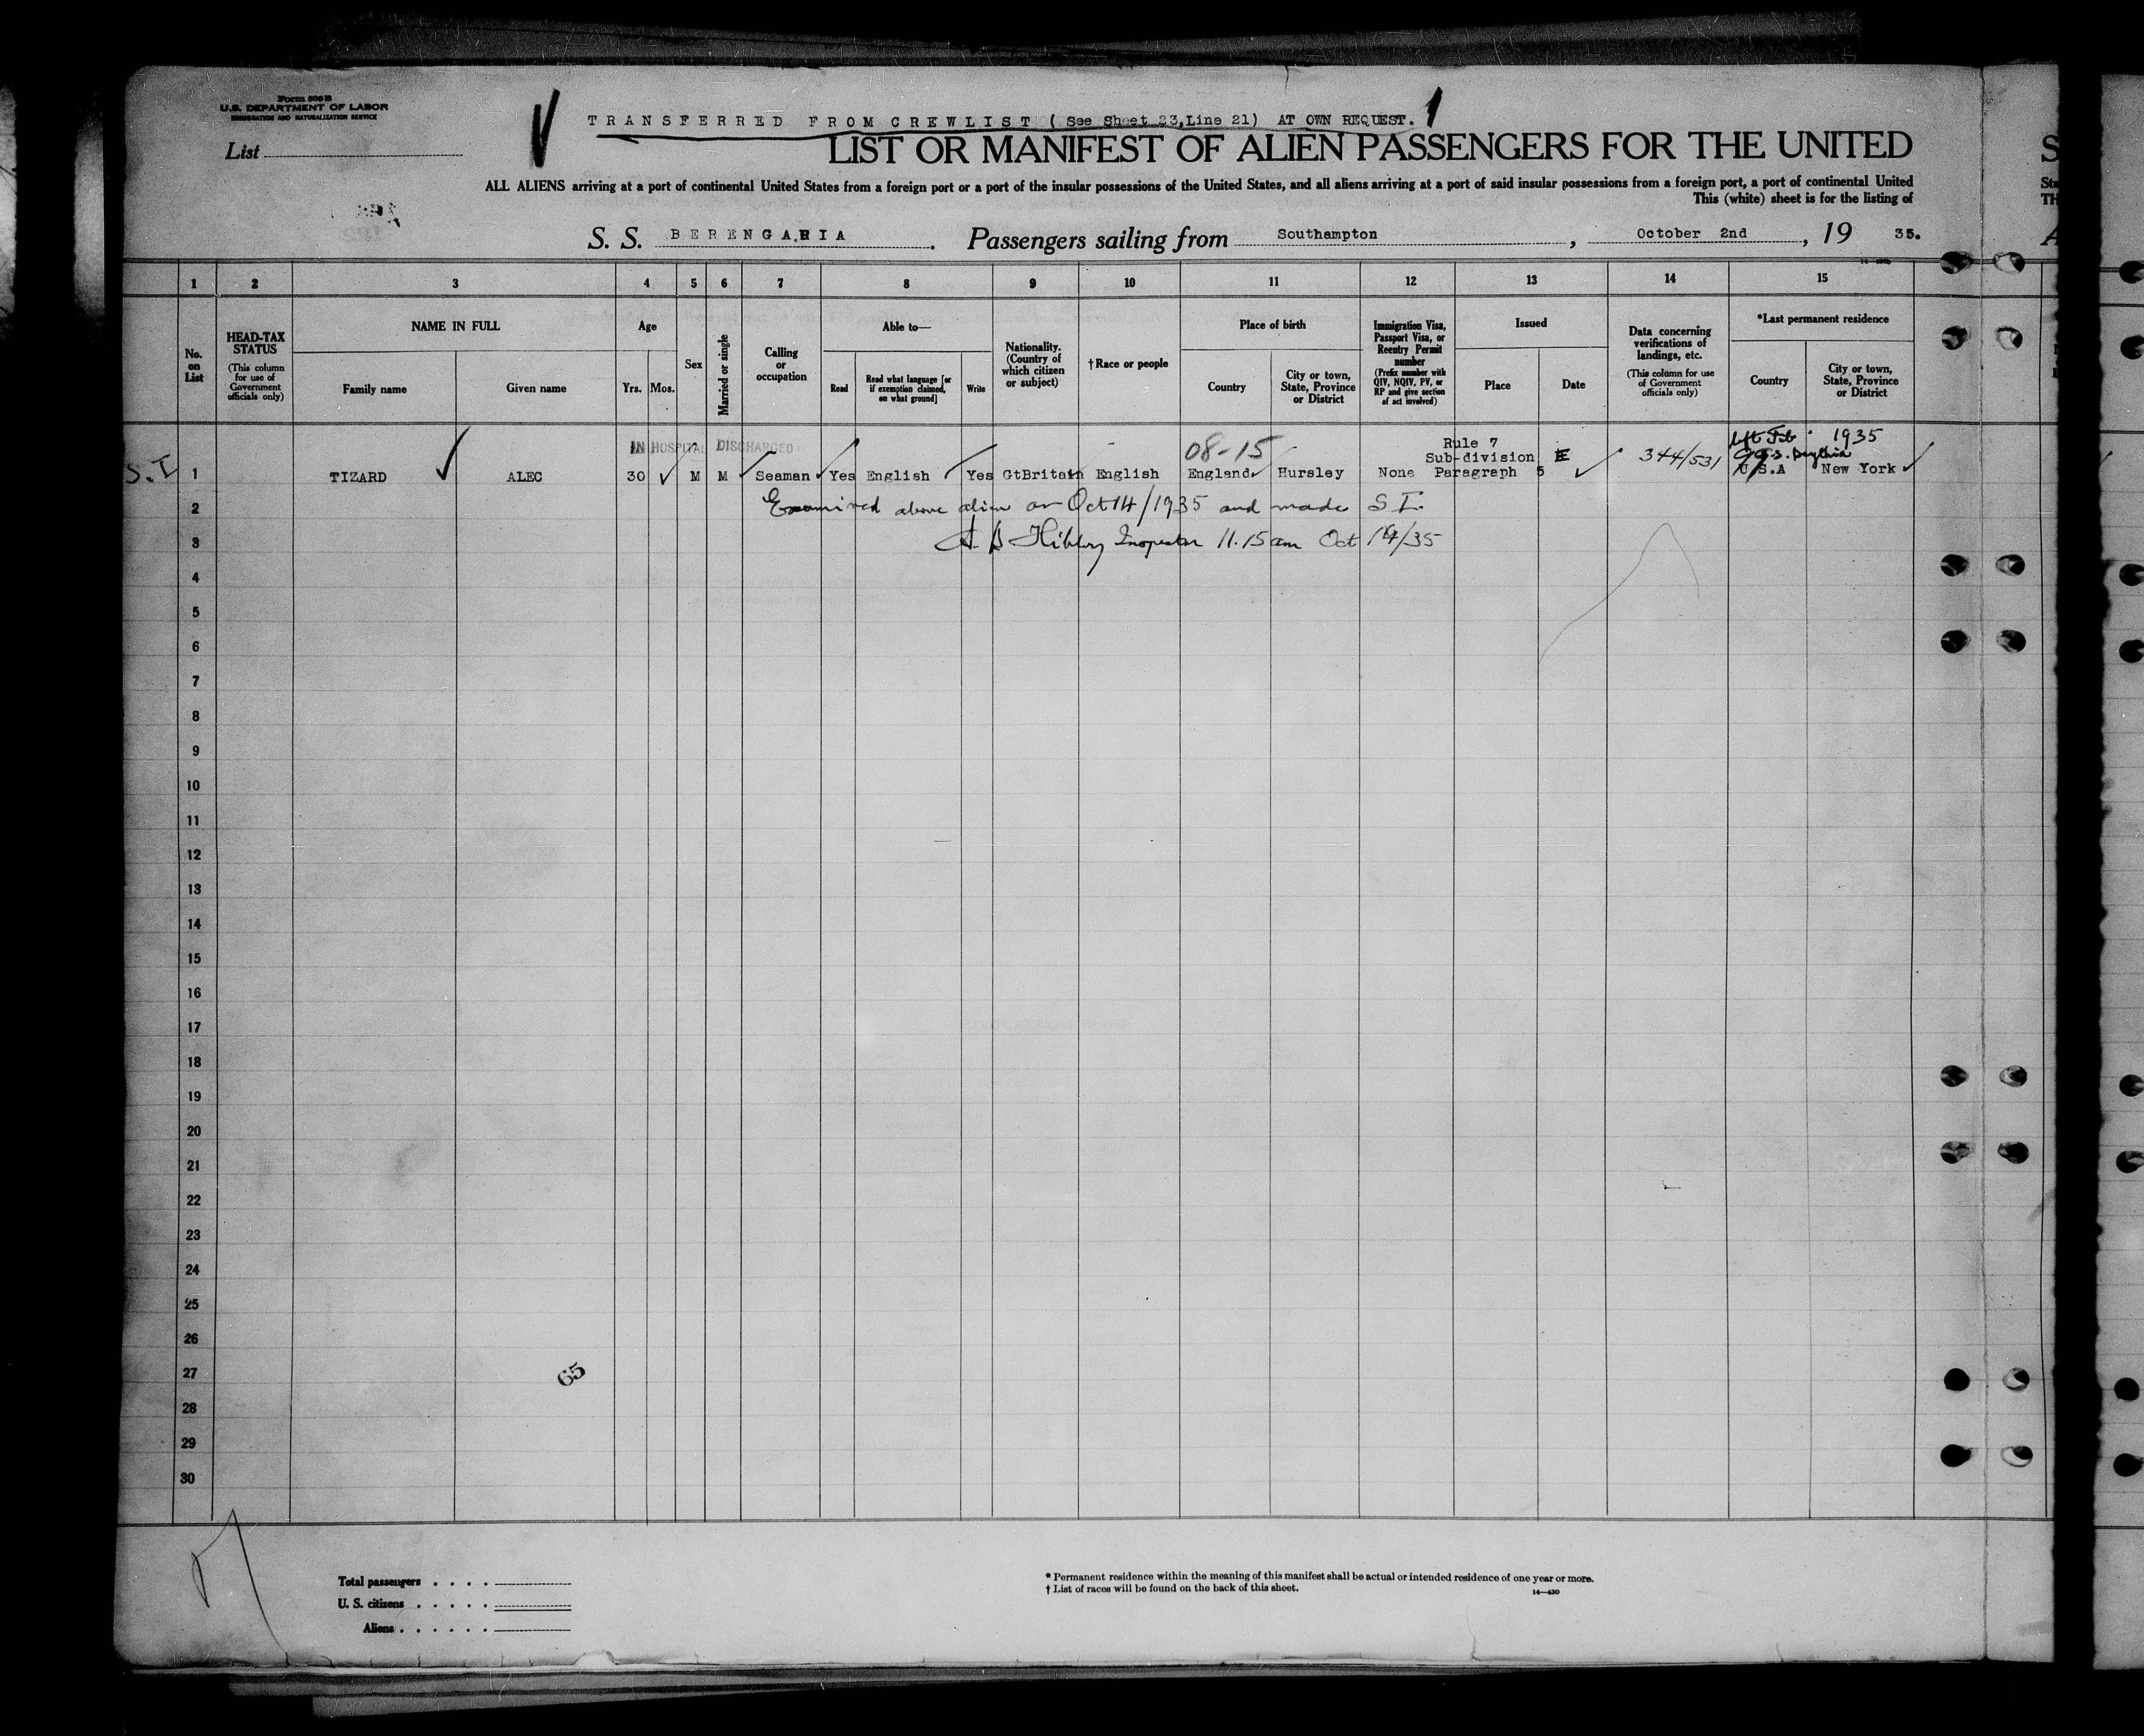 Form 500 B
U.S. DEPARTMENT OF LABOR
IMMIGRATION AND NATURALIZATION SERVICE
List
TRANSFERRED FROM CREWLIST ( See Sheet 23,Line 21) AT OWN REQUEST. 1
LIST OR MANIFEST OF ALIEN PASSENGERS FOR THE UNITED
ALL ALIENS arriving at a port of continental United States from a foreign port or a port of the insular possessions of the United States, and all aliens arriving at a port of said insular possessions from a foreign port, a port of continental United
This (white) sheet is for the listing of
S. S. BERENGARIA. Passengers sailing from Southampton, October 2nd, 19 35.
1 2 3 4 5 6 7 8 9 10 11 12 13 14 15
No. on List
HEAD-TAX STATUS
(This column for use of Government officials only)
NAME IN FULL
Family name
Given name
Age
Yrs. Mos.
Sex
Married or single
Calling or occupation
Able to—
Read
Read what language [or if exemption claimed, on what ground]
Write
Nationality. (Country of which citizen or subject)
†Race or people
Place of birth
Country
City or town, State, Province or District
Immigration Visa, Passport Visa, or Reentry Permit number
(Prefix number with QIV, NQIV, PV, or RP and give section of act involved)
Issued
Place
Date
Data concerning verifications of landings, etc.
(This column for use of Government officials only)
*Last permanent residence
Country
City or town, State, Province or District
IN HOSPITAL DISCHARGED
08-15
Rule 7
Sub-division E
left Feb 1935
S.S. Scythia
S.I. 1 TIZARD ALEC 30 M M Seaman Yes English Yes GtBritain English England Hursley None Paragraph 5 344/531 U.S.A New York
2 Examined above alien on Oct 14/1935 and made S I.
3 Inspector 11.15 am Oct 14/35
4
5
6
7
8
9
10
11
12
13
14
15
16
17
18
19
20
21
22
23
24
25
26
27
28
29
30
65
Total passengers
U. S. citizens
Aliens
* Permanent residence within the meaning of this manifest shall be actual or intended residence of one year or more.
† List of races will be found on the back of this sheet.
14—430